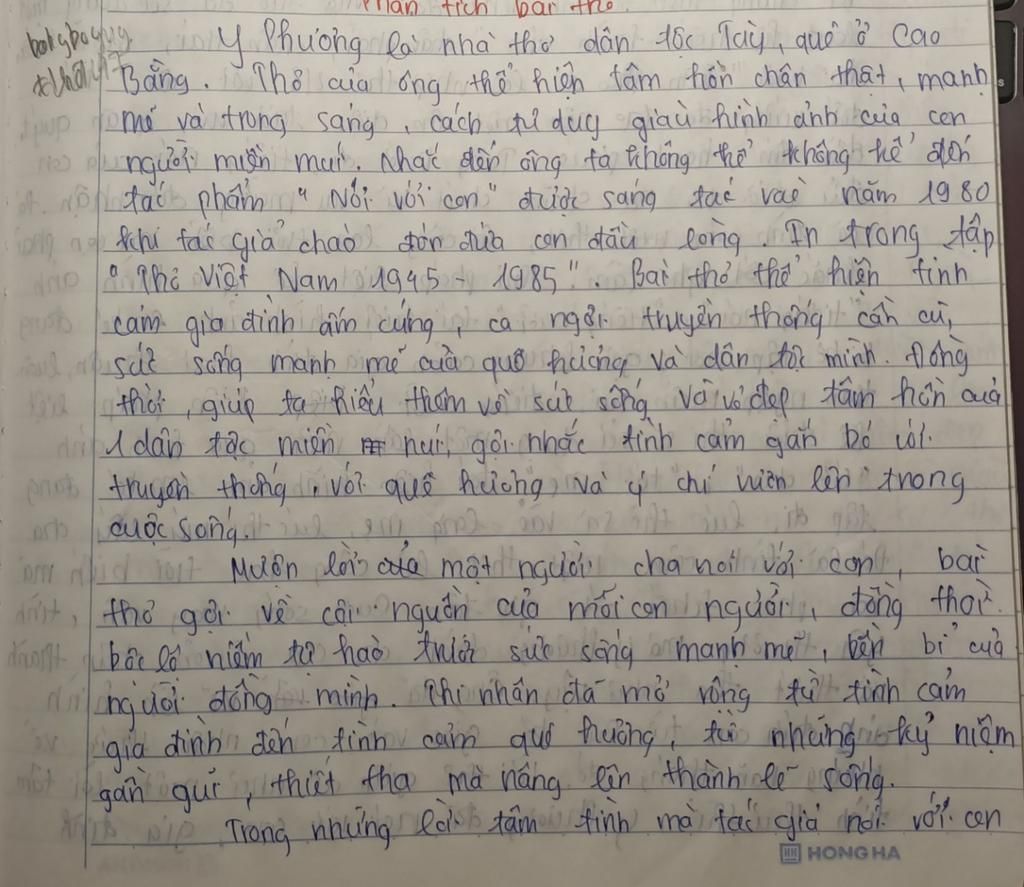 Phân tích bài thơ.
Y Phương là nhà thơ dân tộc Tày, quê ở Cao
Bằng. Thơ của ông thể hiện tâm hồn chân thật, mạnh
mẽ và trong sáng, cách tư duy giàu hình ảnh của con
người miền núi. Nhắc đến ông ta không thể không kể đến
tác phẩm "Nói với con" được sáng tác vào năm 1980
khi tác giả chào đón đứa con đầu lòng. In trong tập
"Thơ Việt Nam 1945 - 1985". Bài thơ thể hiện tình
cảm gia đình ấm cúng, ca ngợi truyền thống cần cù,
sức sống mạnh mẽ của quê hương và dân tộc mình. Đồng
thời, giúp ta hiểu thêm về sức sống và vẻ đẹp tâm hồn của
1 dân tộc miền núi, gợi nhắc tình cảm gắn bó với
truyền thống, với quê hương và ý chí vươn lên trong
cuộc sống.
Mượn lời một người cha nói với con, bài
thơ gợi về cội nguồn của mỗi con người, đồng thời
bộc lộ niềm tự hào trước sức sống mạnh mẽ, bền bỉ của
người đồng mình. Thi nhân đã mở rộng từ tình cảm
gia đình đến tình cảm quê hương, từ những kỷ niệm
gần gũi, thiết tha mà nâng lên thành lẽ sống.
Trong những lời tâm tình mà tác giả nói với con
HONG HA